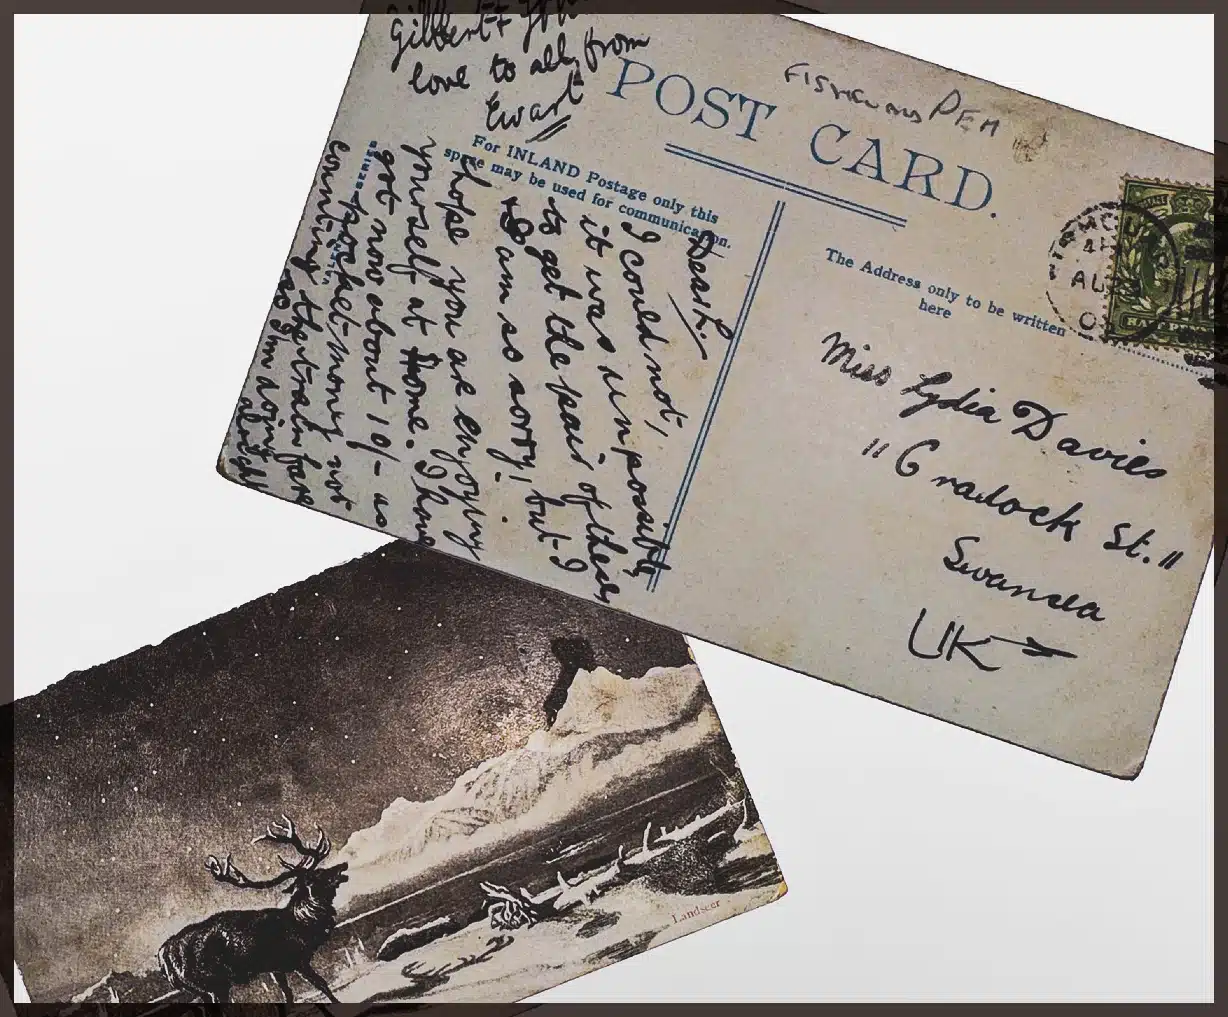 POST CARD.
For INLAND Postage only this
space may be used for communication.
The Address only to be written
here
Miss Lydia Davies
"Cradock St."
Swansea
UK
Dear L/
I could not,
it was impossible
to get the pair of these,
I am so sorry! but I
hope you are enjoying
yourself at Home. I have
got now about 10/- as
pocket-money not
counting the train fare
so I'm doing
alright
love to all, from
Ewart
Landseer